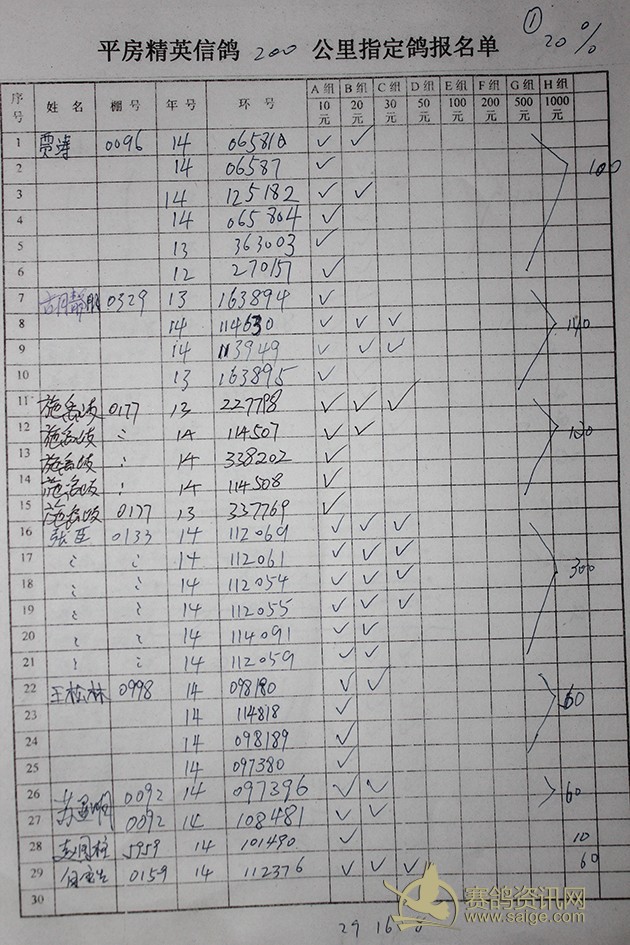 ① 20%
平房精英信鸽 200 公里指定鸽报名单
序号 姓名 棚号 年号 环号 A组10元 B组20元 C组30元 D组50元 E组100元 F组200元 G组500元 H组1000元
1 贾涛 0096 14 065810 ✓ ✓
2 14 06587 ✓ 100
3 14 125182 ✓ ✓
4 14 065804 ✓
5 13 363003 ✓
6 12 270157 ✓
7 胡静 0329 13 163894 ✓
8 14 114630 ✓ ✓ ✓ 140
9 14 113949 ✓ ✓ ✓
10 13 163895 ✓
11 0177 13 227798 ✓ ✓ ✓
12 14 114507 ✓ ✓
13 14 338202 ✓
14 14 114508 ✓
15 0177 13 337769 ✓
16 张臣 0133 14 112069 ✓ ✓ ✓
17 14 112061 ✓ ✓ ✓ 300
18 14 112054 ✓ ✓ ✓
19 14 112055 ✓ ✓ ✓
20 14 114091 ✓ ✓
21 14 112059 ✓ ✓
22 王松林 0998 14 098180 ✓ ✓
23 14 114818 ✓ 60
24 14 098189 ✓
25 14 097380 ✓
26 0092 14 097396 ✓ ✓ 60
27 0092 14 108481 ✓ ✓
28 5959 14 101490 ✓ 10
29 0159 14 112376 ✓ ✓ ✓ 60
30
29 16
赛鸽资讯网
www.saige.com